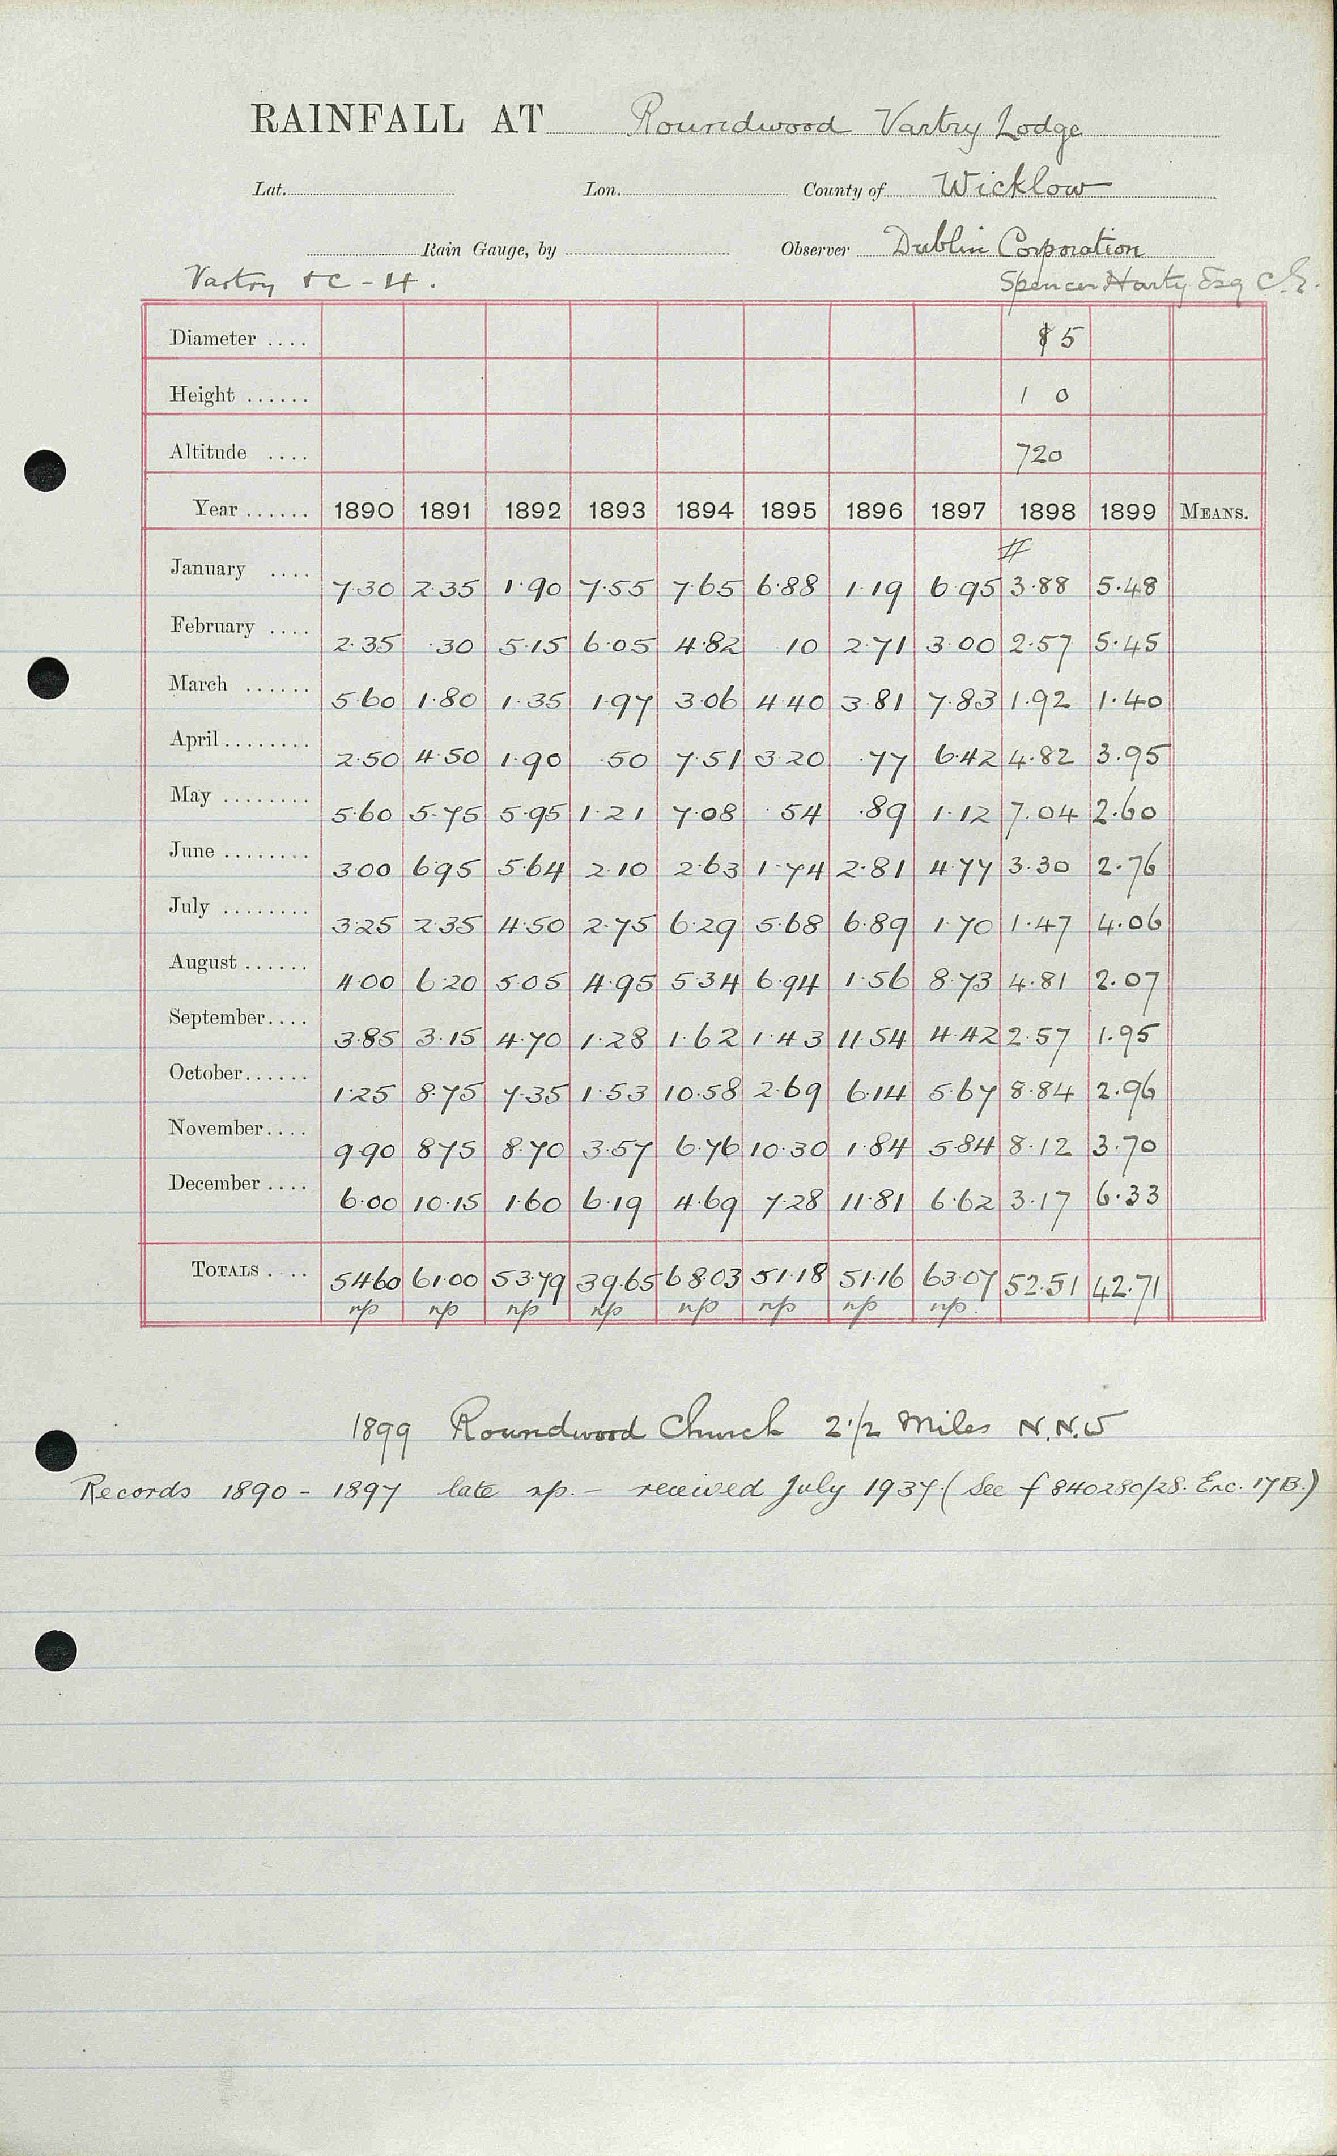 RAINFALL AT Roundwood Vartry Lodge
Lat. Lon. County of Wicklow
Rain Gauge, by Observer Dublin Corporation
Vartry &C - H. Spencer Harty Esq C.E.
Diameter .... 5
Height ...... 1 0
Altitude .... 720
Year ...... 1890 1891 1892 1893 1894 1895 1896 1897 1898 1899 MEANS.
#
January .... 7.30 2.35 1.90 7.55 7.65 6.88 1.19 6.95 3.88 5.48
February .... 2.35 .30 5.15 6.05 4.82 .10 2.71 3.00 2.57 5.45
March ...... 5.60 1.80 1.35 1.97 3.06 4.40 3.81 7.83 1.92 1.40
April ........ 2.50 4.50 1.90 .50 7.51 3.20 .77 6.42 4.82 3.95
May ........ 5.60 5.75 5.95 1.21 7.08 .54 .89 1.12 7.04 2.60
June ........ 3.00 6.95 5.64 2.10 2.63 1.74 2.81 4.77 3.30 2.76
July ........ 3.25 2.35 4.50 2.75 6.29 5.68 6.89 1.70 1.47 4.06
August ...... 4.00 6.20 5.05 4.95 5.34 6.94 1.56 8.73 4.81 2.07
September.... 3.85 3.15 4.70 1.28 1.62 1.43 11.54 4.42 2.57 1.95
October...... 1.25 8.75 7.35 1.53 10.58 2.69 6.14 5.67 8.84 2.96
November.... 9.90 8.75 8.70 3.57 6.76 10.30 1.84 5.84 8.12 3.70
December .... 6.00 10.15 1.60 6.19 4.69 7.28 11.81 6.62 3.17 6.33
TOTALS .... 54.60 61.00 53.79 39.65 68.03 51.18 51.16 63.07 52.51 42.71
np np np np np np np np
1899 Roundwood Church 2 1/2 Miles N.N.W
Records 1890 - 1897 late np. - received July 1937 (See f 840280/28. Enc. 17B.)